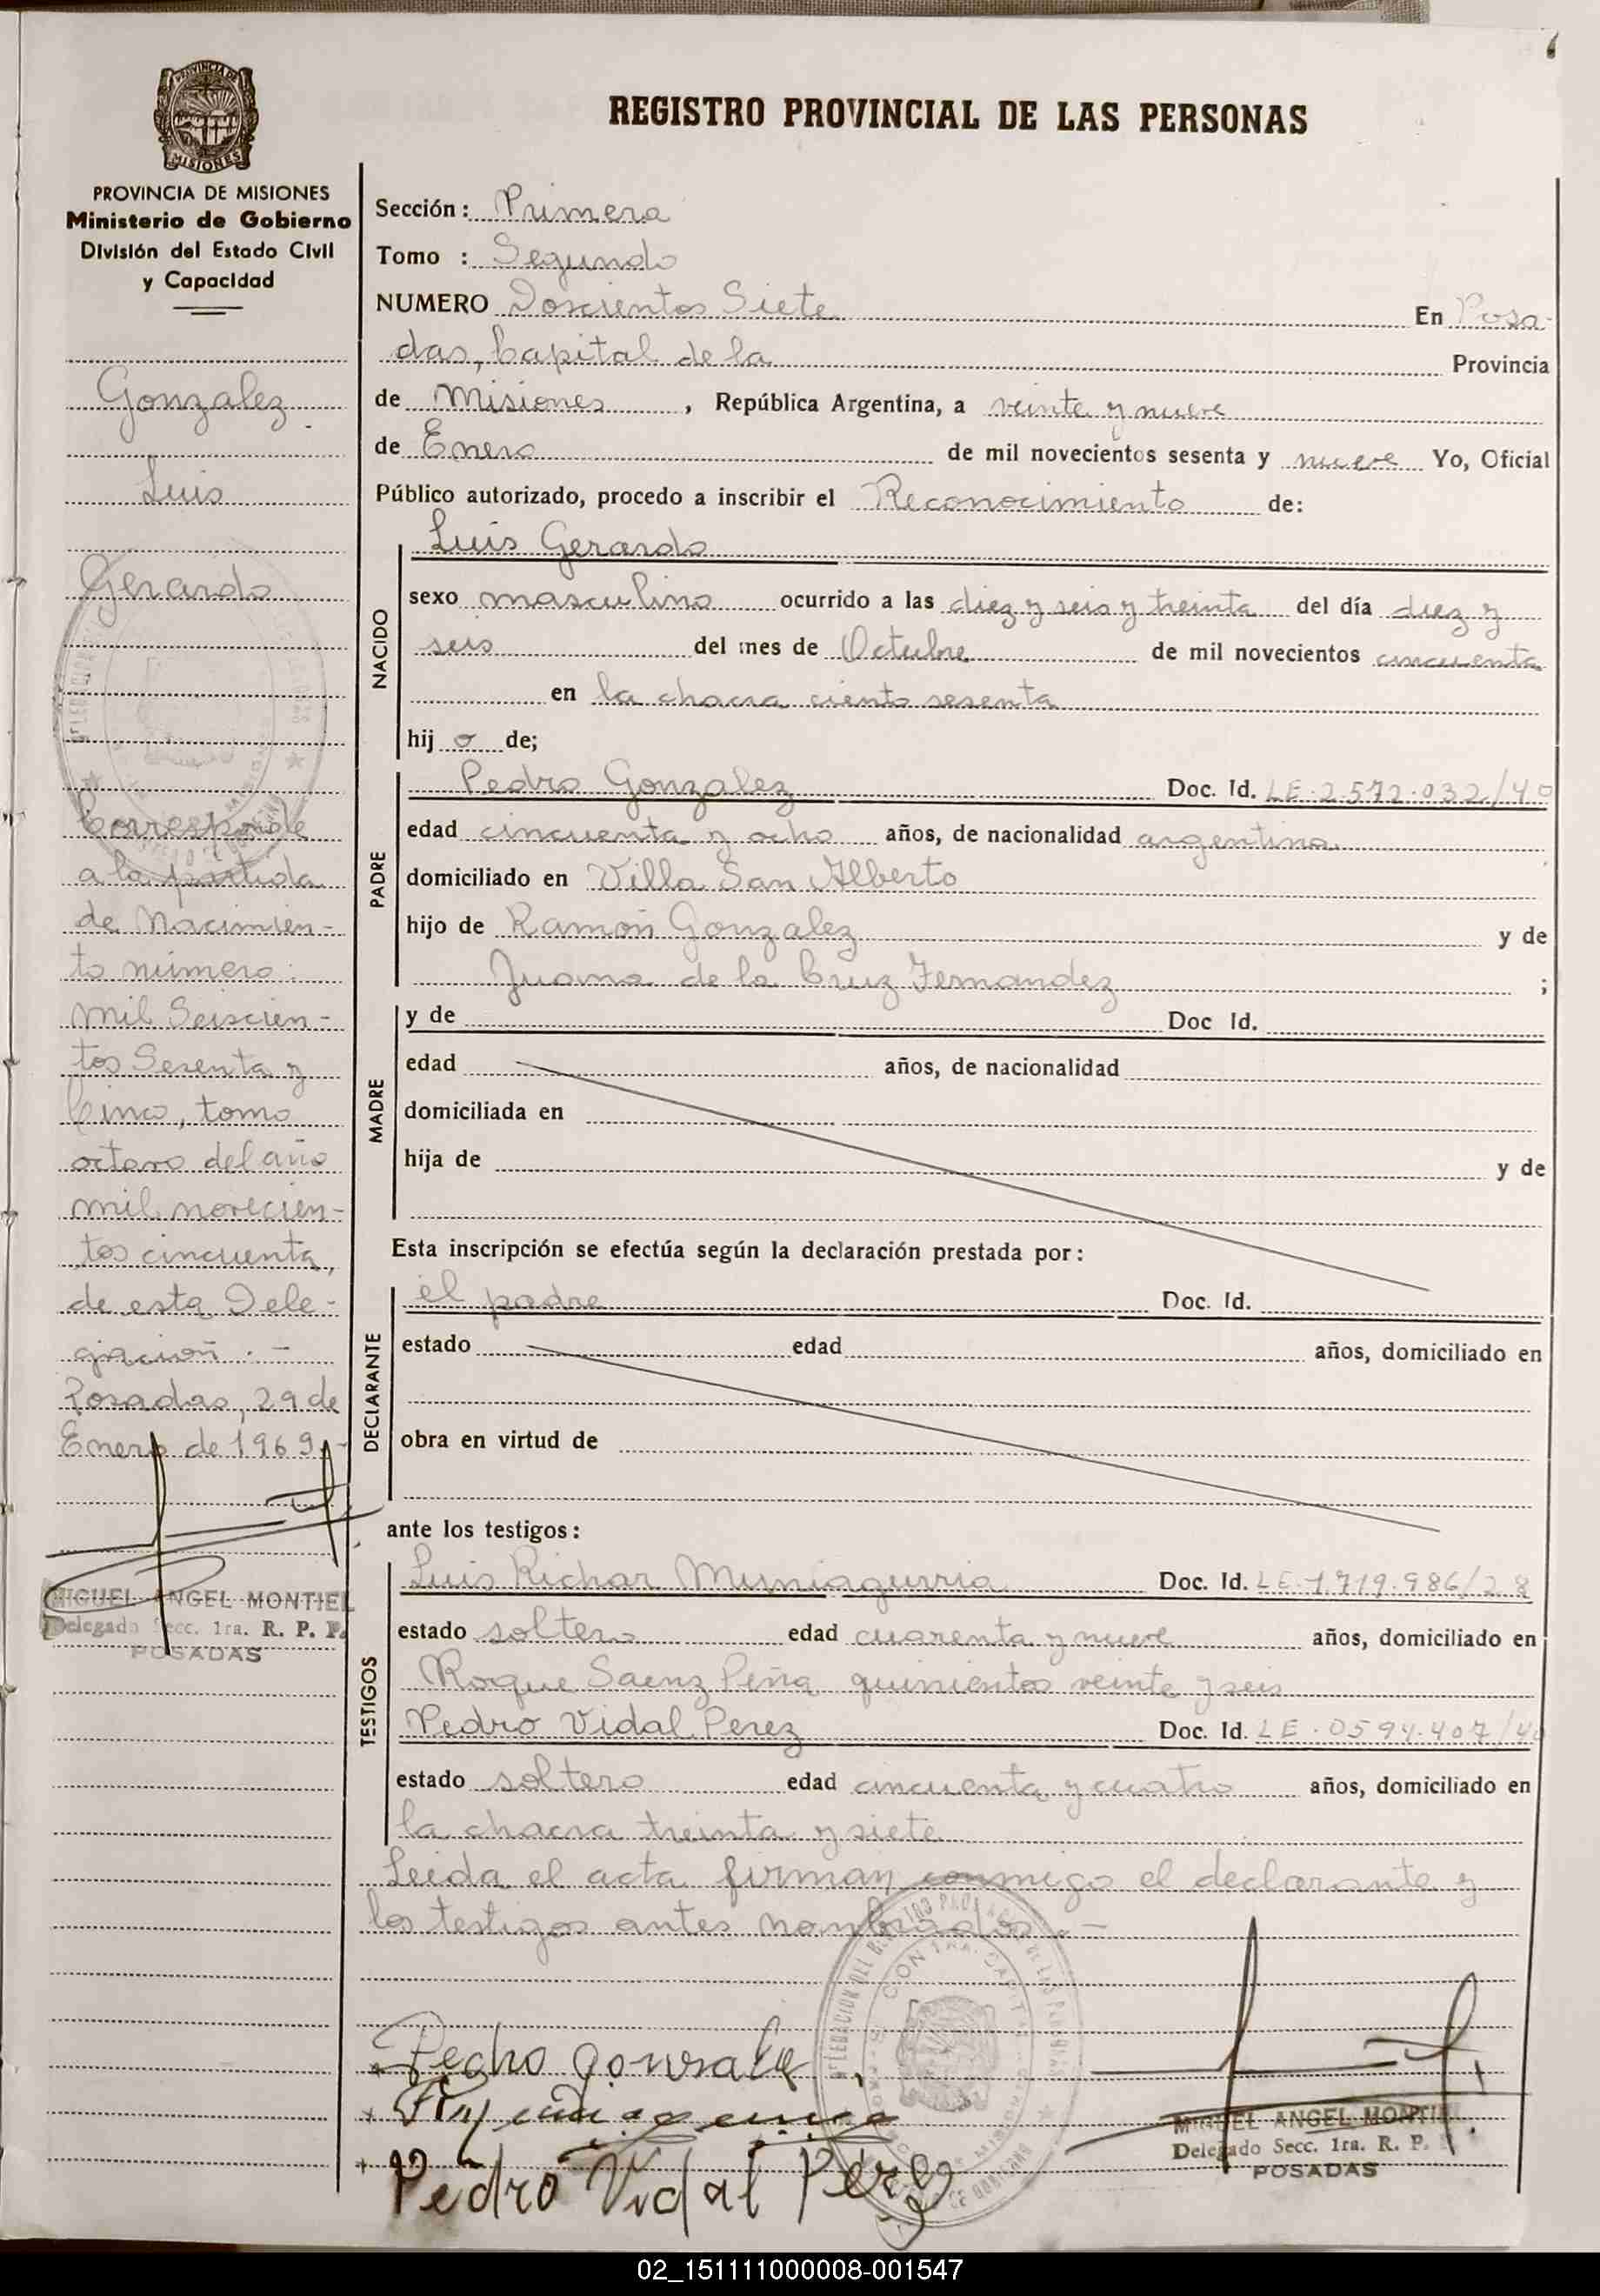 REGISTRO PROVINCIAL DE LAS PERSONAS
PROVINCIA DE MISIONES
MISIONES
PROVINCIA DE MISIONES
Ministerio de Gobierno
División del Estado Civil
y Capacidad
Gonzalez
Luis
Gerardo
Corresponde
a la partida
de Nacimien-
to número:
mil Seiscien-
tos Sesenta y
Cinco, tomo
octavo del año
mil novecien-
tos cincuenta,
de esta Dele-
gación.-
Posadas, 29 de
Enero de 1969.-
MIGUEL ANGEL MONTIEL
Delegado Secc. 1ra. R. P. P.
POSADAS
Sección: Primera
Tomo : Segundo
NUMERO Doscientos Siete En Posa-
das, Capital de la Provincia
de Misiones, República Argentina, a veinte y nueve
de Enero de mil novecientos sesenta y nueve Yo, Oficial
Público autorizado, procedo a inscribir el Reconocimiento de:
NACIDO
Luis Gerardo
sexo masculino ocurrido a las diez y seis y treinta del día diez y
seis del mes de Octubre de mil novecientos cincuenta
en la chacra ciento sesenta
hijo de;
PADRE
Pedro Gonzalez Doc. Id. LE-2.572.032/40
edad cincuenta y ocho años, de nacionalidad argentina
domiciliado en Villa San Alberto
hijo de Ramón Gonzalez y de
Juana de la Cruz Fernandez ;
MADRE
y de Doc Id.
edad años, de nacionalidad
domiciliada en
hija de y de
Esta inscripción se efectúa según la declaración prestada por:
DECLARANTE
el padre Doc. Id.
estado edad años, domiciliado en
obra en virtud de
ante los testigos:
TESTIGOS
Luis Richar Muniagurria Doc. Id. LE-1.719.986/28
estado soltero edad cuarenta y nueve años, domiciliado en
Roque Saenz Peña quinientos veinte y seis
Pedro Vidal Perez Doc. Id. LE-0594.407/40
estado soltero edad cincuenta y cuatro años, domiciliado en
la chacra treinta y siete
Leida el acta firman conmigo el declarante y
los testigos antes nombrados.-
Pedro Gonsale
Pedro Vidal Pérez
MIGUEL ANGEL MONTIEL
Delegado Secc. 1ra. R. P.
POSADAS
02_151111000008-001547